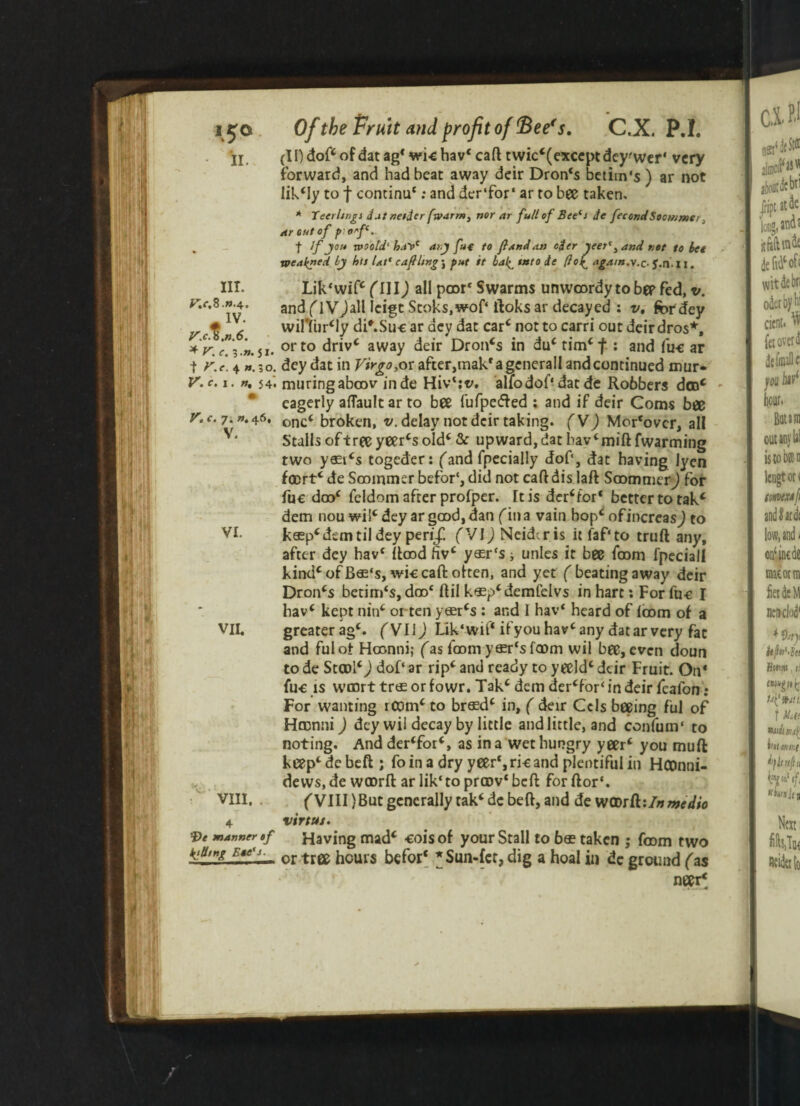 150 Of the Fruit and profit of Beeʻs. C.X. P.I.
II. (II) dosʻ of dat agʻ wi-c havʻ cast twicʻ(except dey'werʻ very
forward, and had beat away deir Dronʻs betim's) ar not
likʻly to † continuʻ: and der'for' ar to bee taken.
* Yeerlings dat neider swarm, nor ar full of Beeʻs de second Soommer,
ar out of proofʻ.
† If you woold' havʻ any su-c to stand an oder yeerʻ, and not to bee
weakned by his latʻ castling; put it bak into de stok again. v.c. 5. n. 11.
III. Lik'wifʻ (III) all poorʻ Swarms unwoordy to bee fed, v.
V.c.8.n.4. and (IV) all leigt Stoks, wof' stoks ar decayed: v. for dey
IV.
V.c.8.n.6. wil surʻly diʻ. Su-c ar dey dat carʻ not to carri out deir dros*,
* V. c. 3. n. 51. or to drivʻ away deir Dronʻs in duʻ timʻ †: and su-c ar
† V.c. 4 n. 30. dey dat in Virgo, or after, makʻ a generall and continued mur-
V. c. 1. n. 54. muring aboov in de Hivʻ: v. also dos' dat de Robbers dooʻ
eagerly assault ar to bee suspected: and if deir Coms bee
V. c. 7. n. 46. oncʻ broken, v. delay not deir taking. (V) Morʻover, all
V. Stalls of tree yeerʻs oldʻ & upward, dat havʻ mist swarming
two yeerʻs togeder: (and specially dosʻ, dat having lyen
foortʻ de Soommer befor', did not cast dis last Soommer) for
su-c dooʻ seldom after prosper. It is derʻforʻ better to takʻ
dem nou wilʻ dey ar good, dan (in a vain hopʻ of increas) to
VI. keepʻ dem til dey perish. (VI) Neider is it saf' to trust any,
after dey havʻ stood fivʻ yeer's; unles it bee soom speciall
kindʻ of Bee's, wi-c cast often, and yet (beating away deir
Dronʻs betimʻs, dooʻ stil keepʻ demselvs in hart: For su-c I
havʻ kept ninʻ or ten yeerʻs: and I havʻ heard of soom of a
VII. greater agʻ. (VII) Lik'wifʻ if you havʻ any dat ar very fat
and ful of Hoonni; (as soom yeerʻs soom wil bee, even doun
to de Stoolʻ) dos' ar ripʻ and ready to yeeldʻ deir Fruit. Onʻ
su-c is woort tree or fowr. Takʻ dem derʻfor' in deir season:
For wanting roomʻ to breedʻ in, (deir Cels beeing ful of
Hoonni) dey wil decay by little and little, and consum' to
noting. And derʻforʻ, as in a wet hungry yeerʻ you must
keepʻ de best; so in a dry yeerʻ, ri-c and plentiful in Hoonni-
dews, de woorst ar lik' to proov' best for stor'.
VIII. (VIII) But generally takʻ de best, and de woorst: In medio
4 virtus.
De manner of Having madʻ cois of your Stall to bee taken; soom two
killing Beeʻs. or tree hours beforʻ * Sun-set, dig a hoal in de ground (as
neerʻ